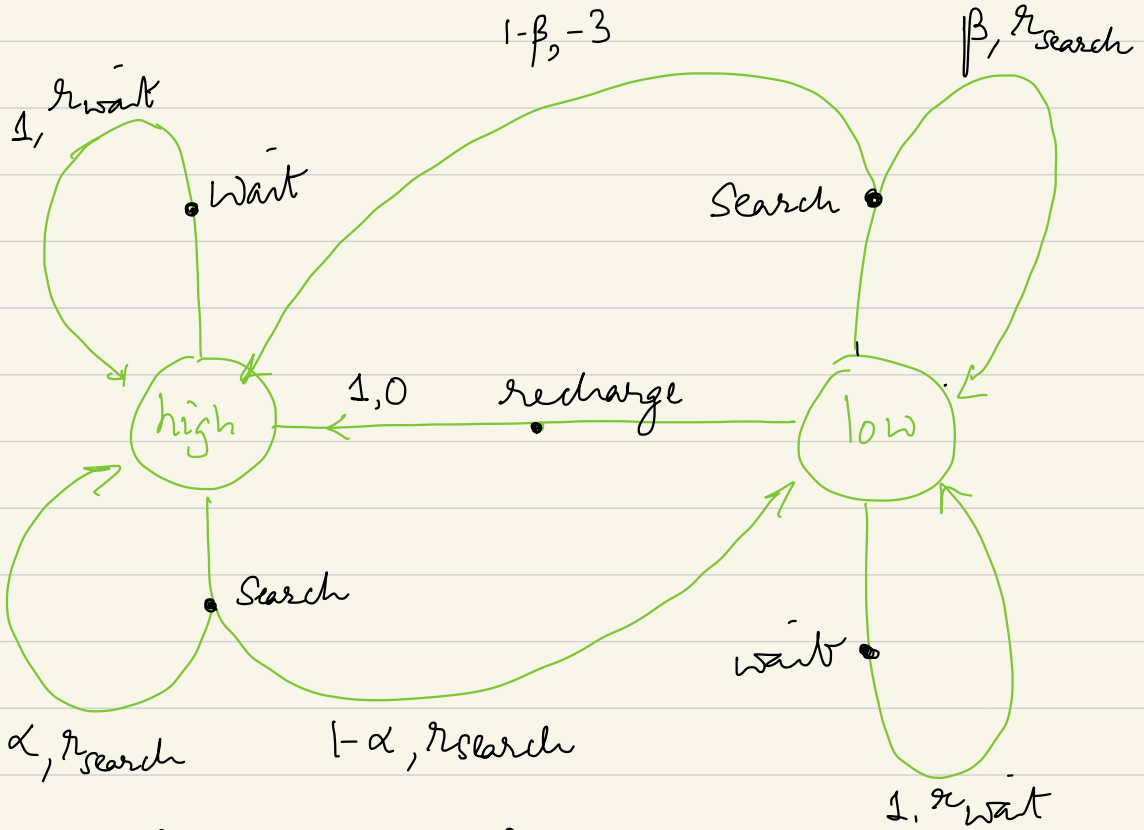 1-β, -3
β, r_search
1, r_wait
wait
search
1,0
recharge
high
low
search
wait
α, r_search
1-α, r_search
1, r_wait